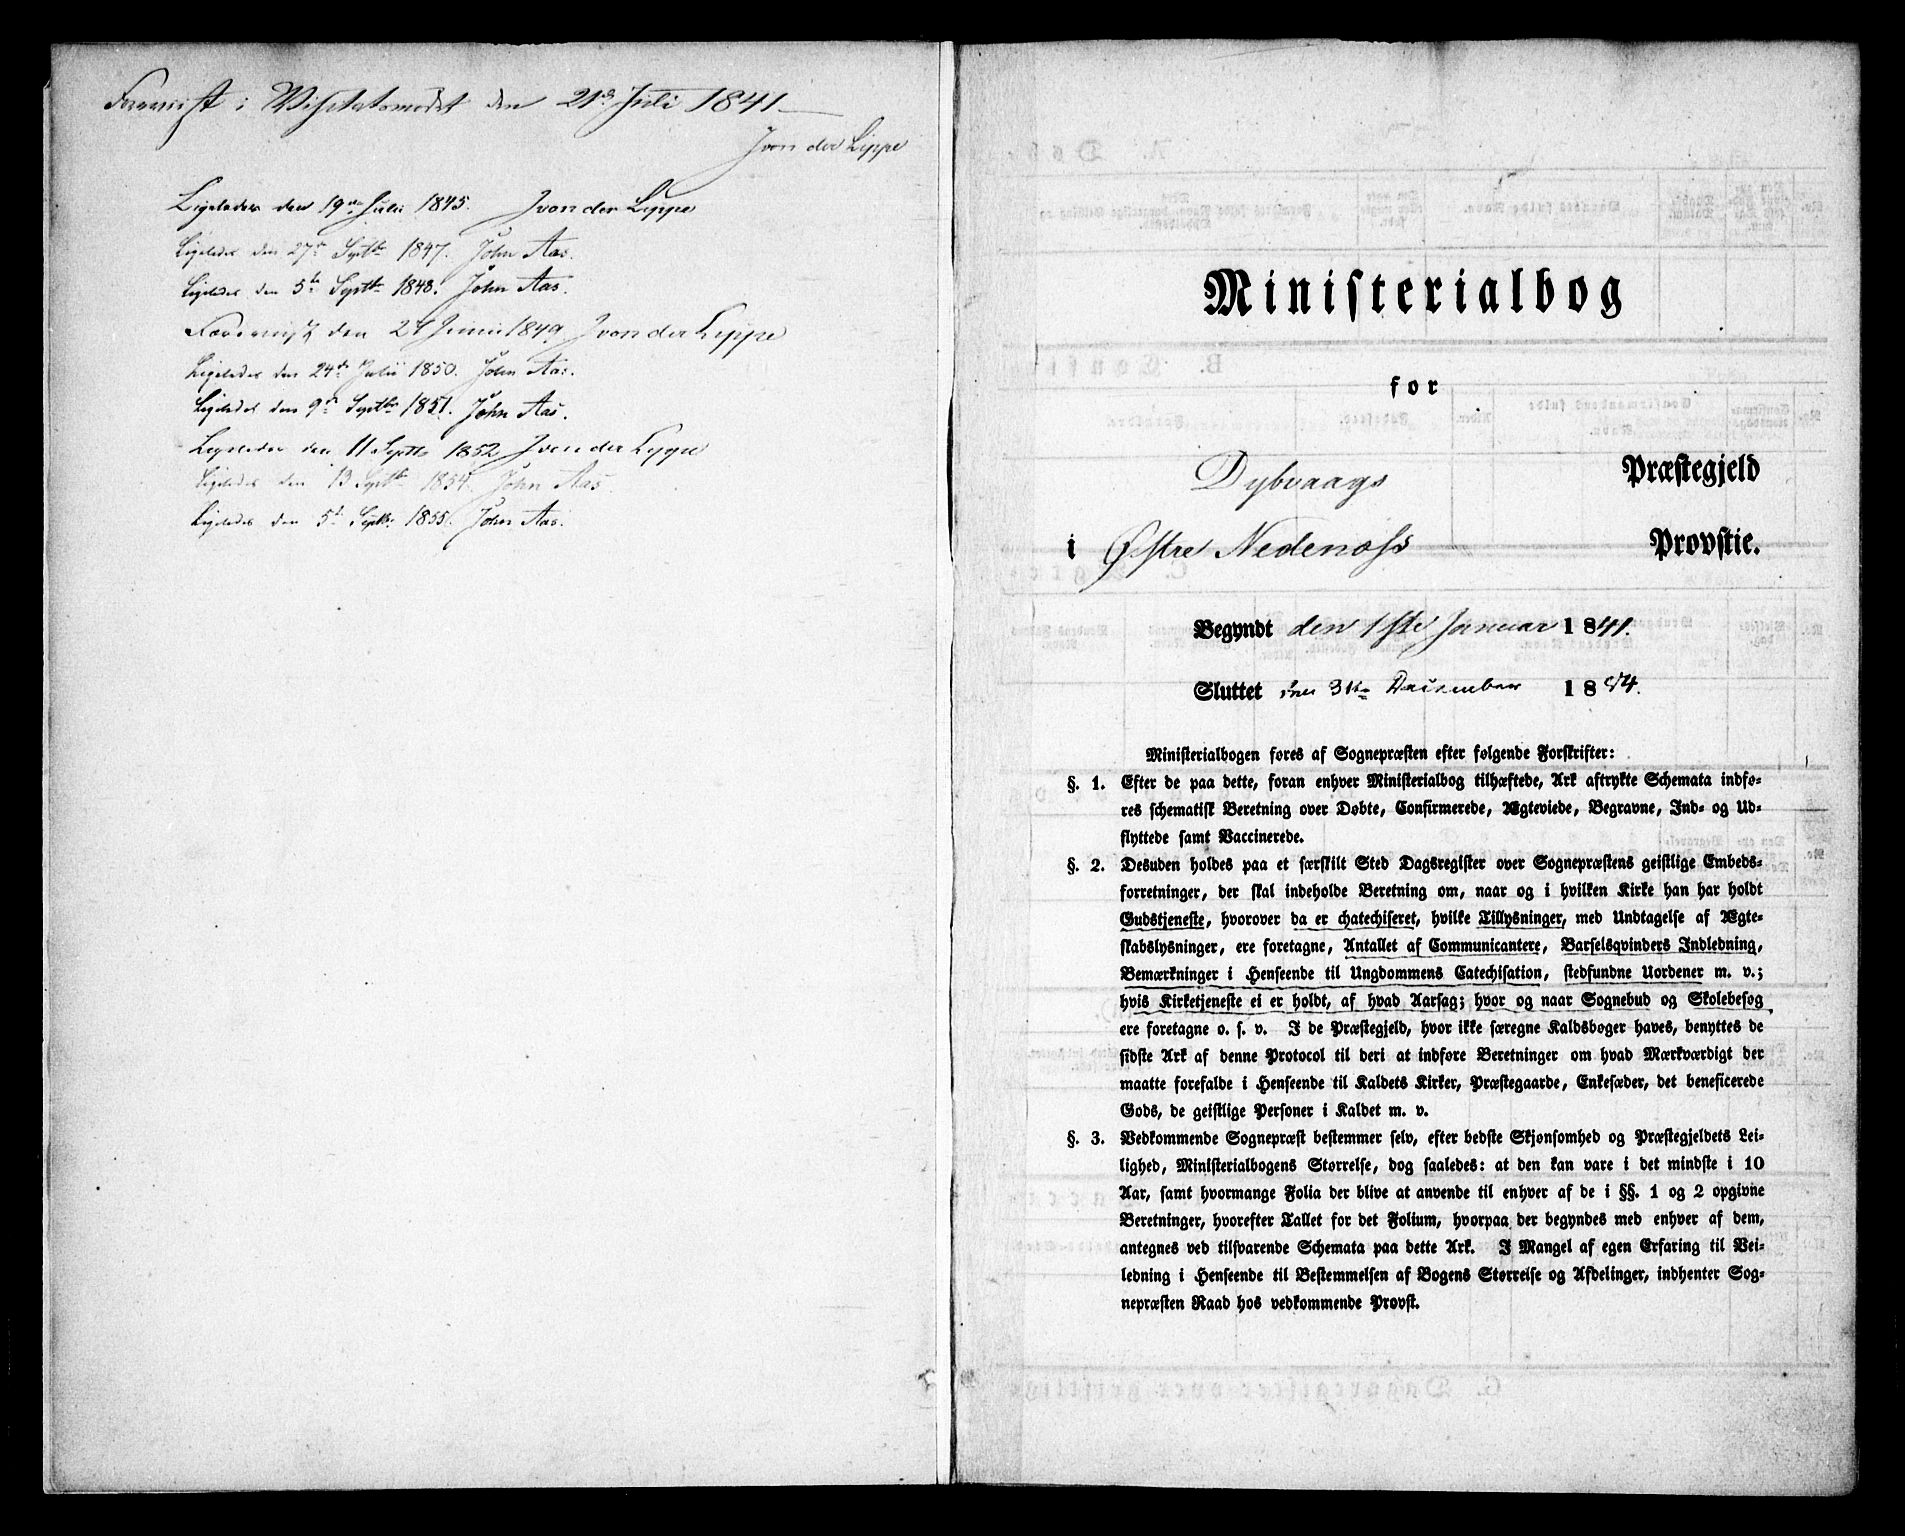 Foreviist i Visitatsmødet den 21de Juli 1841
J von der Lippe
Ligeledes den 19de Julii 1845. J von der Lippe
Ligeledes den 27de Septbr 1847. John Aas.
Ligeledes den 5te Septbr 1848. John Aas.
Foreviist den 27 Junii 1849 J von der Lippe
Ligeledes den 24de Julii 1850. John Aas.
Ligeledes den 9de Septbr 1851. John Aas.
Ligeledes den 11 Septbr 1852 J von der Lippe
Ligeledes den 13 Septbr 1854. John Aas.
Ligeledes den 5te Septbr. 1855. John Aas.
Ministerialbog
for
Dybvaags Præstegjeld
i Østre Nedenæss Provstie.
Begyndt den 1ste Januar 1841.
Sluttet den 31te December 1854.
Ministerialbogen føres af Sognepræsten efter følgende Forskrifter:
§. 1. Efter de paa dette, foran enhver Ministerialbog tilhæftede, Ark aftrykte Schemata indfø-
res schematisk Beretning over Døbte, Confirmerede, Ægteviede, Begravne, Ind- og Ud-
flyttede samt Vaccinerede.
§. 2. Desuden holdes paa et særskilt Sted Dagsregister over Sognepræstens geistlige Embeds-
forretninger, der skal indeholde Beretning om, naar og i hvilken Kirke han har holdt
Gudstjeneste, hvorover da er chatechiseret, hvilke Tillysninger, med Undtagelse af Ægte-
skabslysninger, ere foretagne, Antallet af Communicantere, Barselqvinders Indledning,
Bemærkninger i Henseende til Ungdommens Catechisation, stedfundne Uordener m. v.;
hvis Kirketjeneste ei er holdt, af hvad Aarsag; hvor og naar Sognebud og Skolebesøg
ere foretagne o. s. v. I de Præstegjeld, hvor ikke særegne Kaldsbøger haves, benyttes de
sidste Ark af denne Protocol til deri at indføre Beretninger om hvad Mærkværdigt der
maatte forefalde i Henseende til Kaldets Kirker, Præstegaarde, Enkesæder, det beneficerede
Gods, de geistlige Personer i Kaldet m. v.
§. 3. Vedkommende Sognepræst bestemmer selv, efter bedste Skjønsomhed og Præstegjeldets Lei-
lighed, Ministerialbogens Størrelse, dog saaledes: at den kan vare i det mindste i 10
Aar, samt hvormange Folia der blive at anvende til enhver af de i §§. 1 og 2 opgivne
Beretninger, hvorefter Tallet for det Folium, hvorpaa der begyndes med enhver af dem,
antegnes ved tilsvarende Schemata paa dette Ark. I Mangel af egen Erfaring til Vei-
ledning i Henseende til Bestemmelsen af Bogens Størrelse og Afdelinger, indhenter Sog-
nepræsten Raad hos vedkommende Provst.